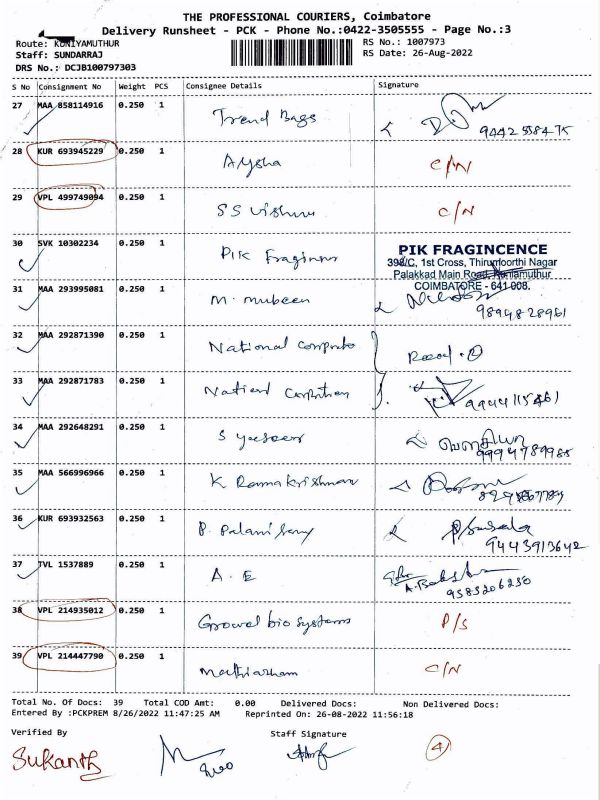 THE PROFESSIONAL COURIERS, Coimbatore
Delivery Runsheet - PCK - Phone No.:0422-3505555 - Page No.:3
Route: KUNIYAMUTHUR RS No.: 1007973
Staff: SUNDARRAJ RS Date: 26-Aug-2022
DRS No.: DCJB100797303
S No Consignment No Weight PCS Consignee Details Signature
27 MAA 858114916 0.250 1 Trend Bags
28 KUR 693945229 0.250 1 Aysha C/N
29 VPL 499749094 0.250 1 SS Vishnu C/N
30 SVK 10302234 0.250 1 PIK
PIK FRAGINCENCE
398/C, 1st Cross, Thirumoorthi Nagar
Palakkad Main Road, Kuniamuthur
COIMBATORE - 641 008.
31 MAA 293995081 0.250 1 M. Mubeen
9894828961
32 MAA 292871390 0.250 1 National
33 MAA 292871783 0.250 1
9944115461
34 MAA 292648291 0.250 1 S
9994789985
35 MAA 566996966 0.250 1 K Ramakrishnan
36 KUR 693932563 0.250 1 P. Palanisamy
9443913642
37 TVL 1537889 0.250 1 A. E
9585206250
38 VPL 214935012 0.250 1 Growel bio systems P/S
39 VPL 214447790 0.250 1 C/N
Total No. Of Docs: 39 Total COD Amt: 0.00 Delivered Docs: Non Delivered Docs:
Entered By :PCKPREM 8/26/2022 11:47:25 AM Reprinted On: 26-08-2022 11:56:18
Verified By Staff Signature
Sukanth 4